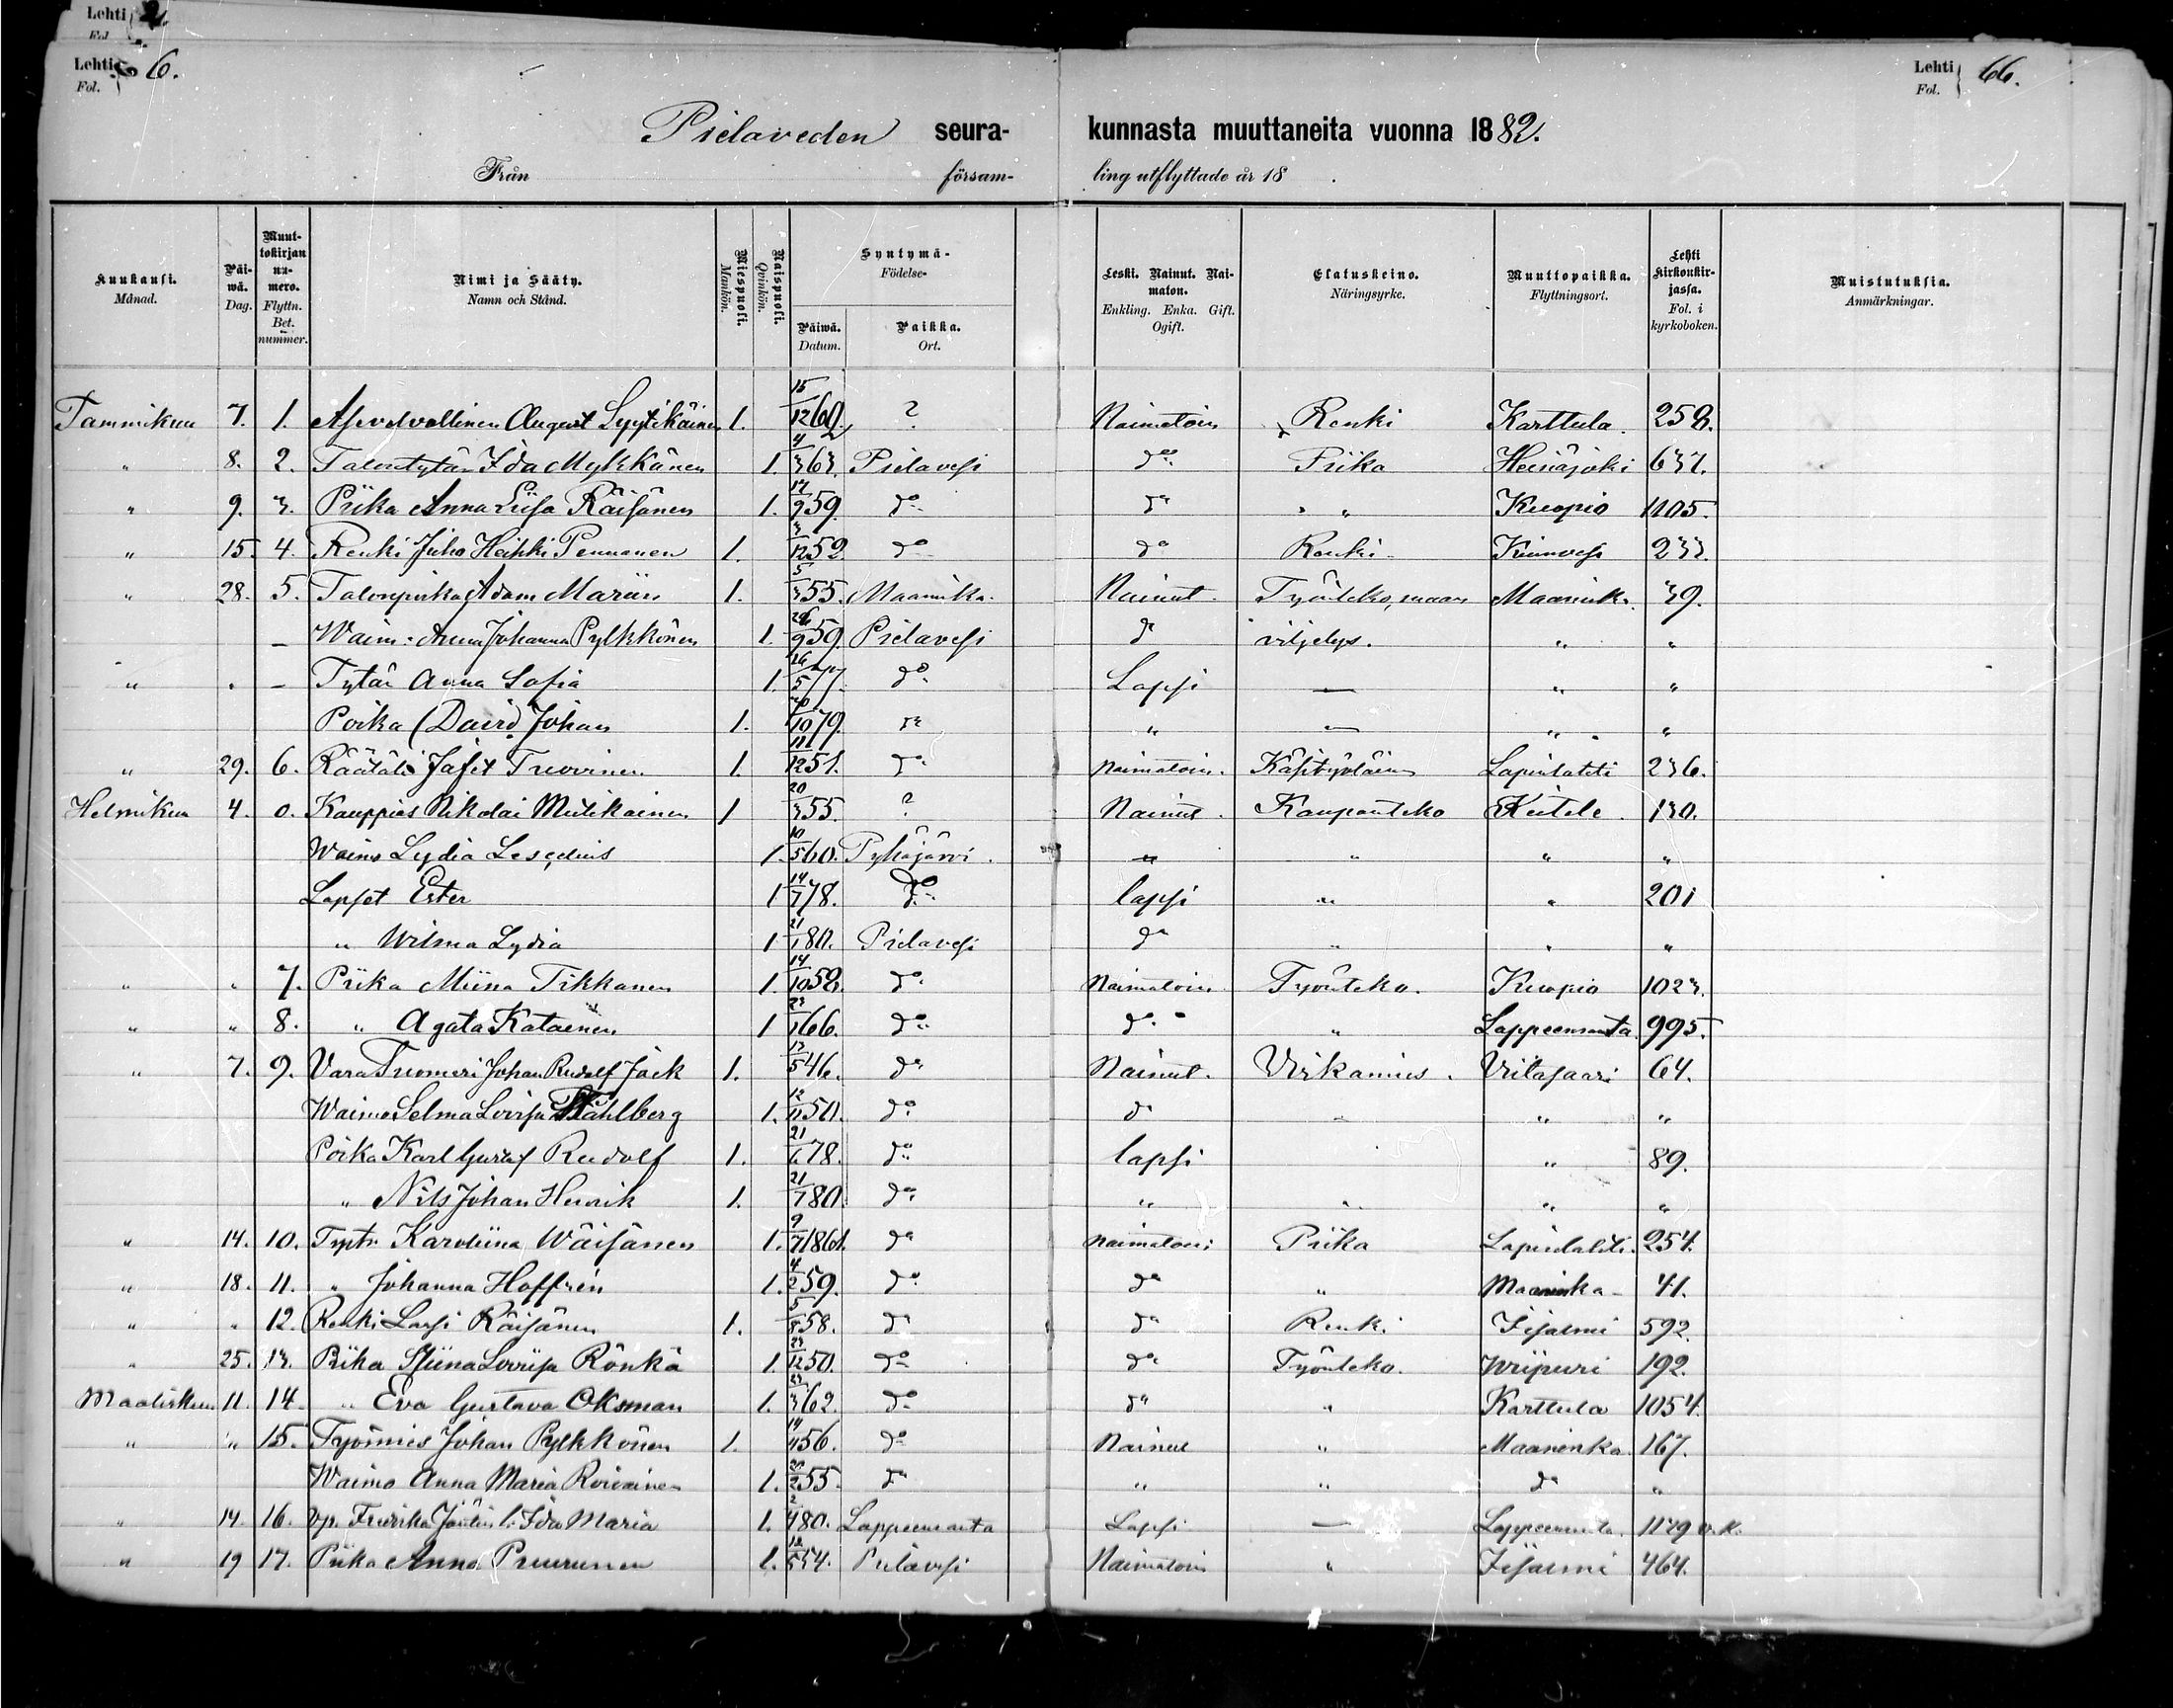 Lehti 2.
Fol.
Lehti 6.
Fol.
Lehti 66.
Fol.
Pielaveden seura- kunnasta muuttaneita vuonna 1882.
Från försam- ling utflyttade år 18 .
Kuukausi. Månad.
Päi-wä. Dag.
Muut-tokirjan nu-mero. Flyttn. Bet. nummer.
Nimi ja Sääty. Namn och Stånd.
Miespuoli. Mankön.
Naispuoli. Qvinkön.
Syntymä- Födelse-
Päiwä. Datum.
Paikka. Ort.
Leski. Nainut. Nai-maton. Enkling. Enka. Gift. Ogift.
Elatuskeino. Näringsyrke.
Muuttopaikka. Flyttningsort.
Lehti kirkonkir-jassa. Fol. i kyrkoboken.
Muistutuksia. Anmärkningar.
Tammikuu 7. 1. Asevelvollinen August Lyytikäinen 1. 15/12 60. ? Naimatoin Renki Karttula. 258.
" 8. 2. Talontytär Ida Mykkänen 1. 4/3 63. Pielavesi do Piika Heinäjoki 637.
" 9. 3. Piika Anna Liisa Räisänen 1. 17/9 59. do do " Kuopio 1105.
" 15. 4. Renki Juho Heikki Pennanen 1. 3/12 52 do do Renki Kiuruvesi 233.
" 28. 5. Talonpoika Adam Marin 1. 5/3 55. Maaninka. Nainut. Työnteko, maan Maanink. 39.
– Waim: Anna Johanna Pylkkönen 1. 26/9 59. Pielavesi do viljelys. " "
" . – Tytär Anna Sofia 1. 26/5 77. do Lapsi — " "
Poika (David) Johan 1. 20/10 79. do " — " "
" 29. 6. Räätäli Jafet Tuovinen 1. 11/12 51. do naimatoin. Käsityöläinen Lapinlahti 236.
Helmikuu 4. 0. Kauppias Nikolai Mutikainen 1 20/3 55. ? Nainut. Kaupanteko Keitele. 130.
Waimo Lydia 1. 10/5 60. Pyhäjärvi. " " " "
Lapset Ester 1 14/7 78. Do lapsi " " 201
" Wilma Lydia 1 21/1 80. Pielavesi do " " "
" " 7. Piika Miina Tikkanen 1. 14/10 58. do Naimatoin Työnteko. Kuopio 1023.
" " 8. " Agata Katainen 1 23/1 66. do do " Lappeenranta 995.
" 7. 9. Vara Tuomeri Johan Rudolf Jack 1. 17/5 46. do Nainut. Virkamies. Viitasaari 64.
Waimo Selma Lovisa Ståhlberg 1. 12/11 50. do do " " "
Poika Karl Gustaf Rudolf 1. 21/6 78. do lapsi " 89.
" Nils Johan Henrik 1. 21/7 80. do " " " "
" 14. 10. Tytr Karoliina Wäisänen 1. 9/7 1861. do naimatoin Piika Lapinlahti. 254.
" 18. 11. " Johanna Hoffrén 1. 4/2 59. do do " Maaninka 41.
" " 12. Renki Lassi Räisänen 1. 5/8 58. do do Renki Iisalmi 592.
" 25. 13. Piika Stiina Loviisa Rönkä 1. 23/12 50. do do Työnteko. Wiipuri 192.
Maaliskuu 11. 14. " Eva Gustava Oksman 1. 23/3 62. do do " Karttula 1054.
" " 15. Työmies Johan Pylkkönen 1. 14/11 56. do Nainut " Maaninka 167.
Waimo Anna Maria Roivainen 1. 20/2 55. do " " do "
" 14. 16. Ida Maria 1. 2/4 80. Lappeenranta Lapsi — Lappeenranta. 1129 v.k.
" 19 17. Piika Anna Puurunen 1. 12/5 54. Pielavesi Naimatoin " Iisalmi 464.